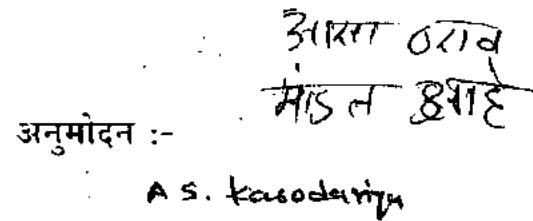 असा ठराव
मांडत आहे
अनुमोदन :-
A S. Kasodariya